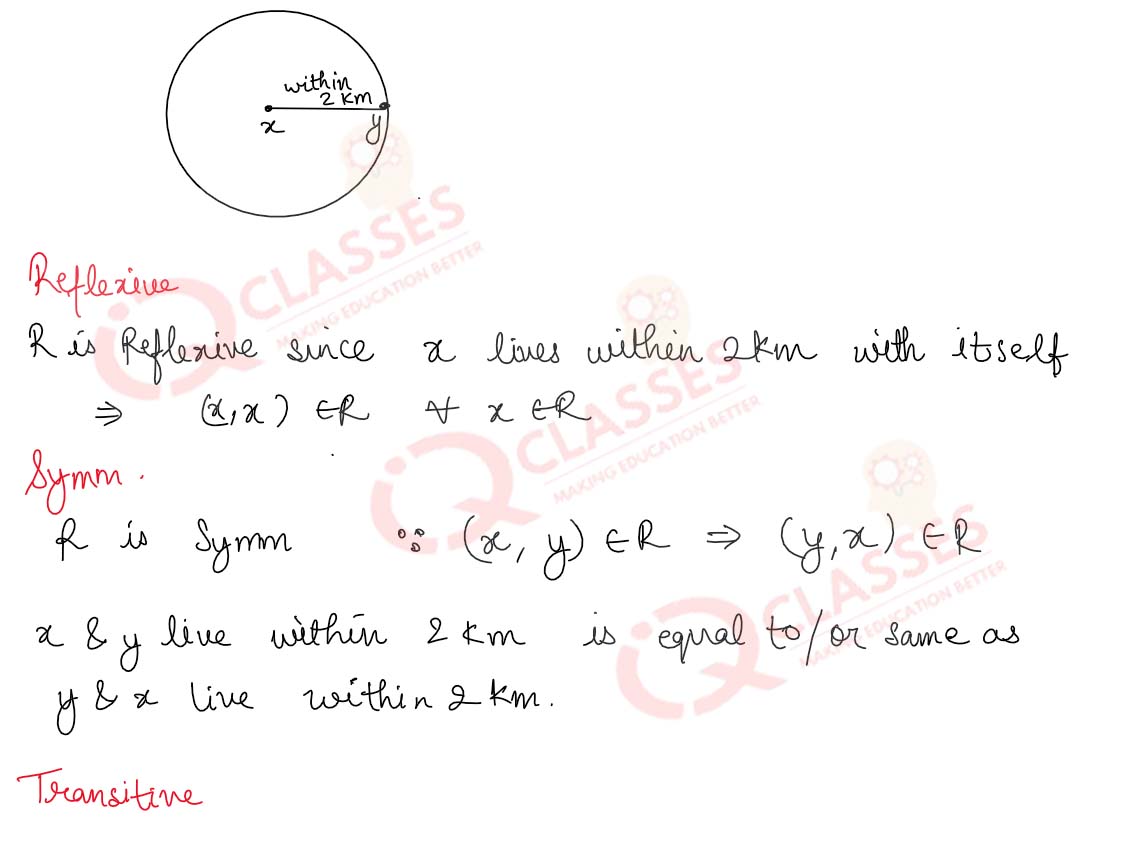 within
2 km
x
y
Reflexive
R is Reflexive since x lives within 2 km with itself
⇒ (x,x) ∈R ∀ x ∈R
Symm.
R is Symm ∵ (x, y) ∈R ⇒ (y,x) ∈R
x & y live within 2 km is equal to/or same as
y & x live within 2 km.
Transitive
iQ CLASSES
MAKING EDUCATION BETTER
iQ CLASSES
MAKING EDUCATION BETTER
iQ CLASSES
MAKING EDUCATION BETTER